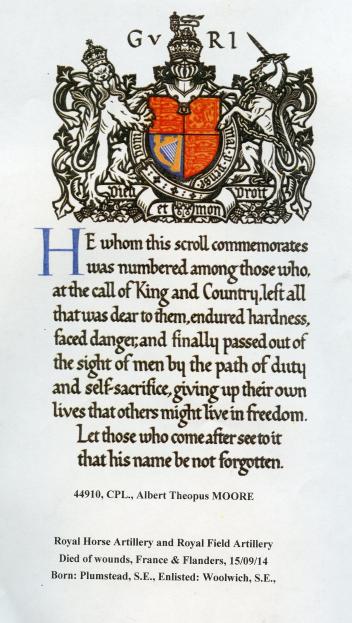 G V R I
Dieu et mon Droit
HE whom this scroll commemorates
was numbered among those who,
at the call of King and Country, left all
that was dear to them, endured hardness,
faced danger, and finally passed out of
the sight of men by the path of duty
and self-sacrifice, giving up their own
lives that others might live in freedom.
Let those who come after see to it
that his name be not forgotten.
44910, CPL., Albert Theopus MOORE
Royal Horse Artillery and Royal Field Artillery
Died of wounds, France & Flanders, 15/09/14
Born: Plumstead, S.E., Enlisted: Woolwich, S.E.,